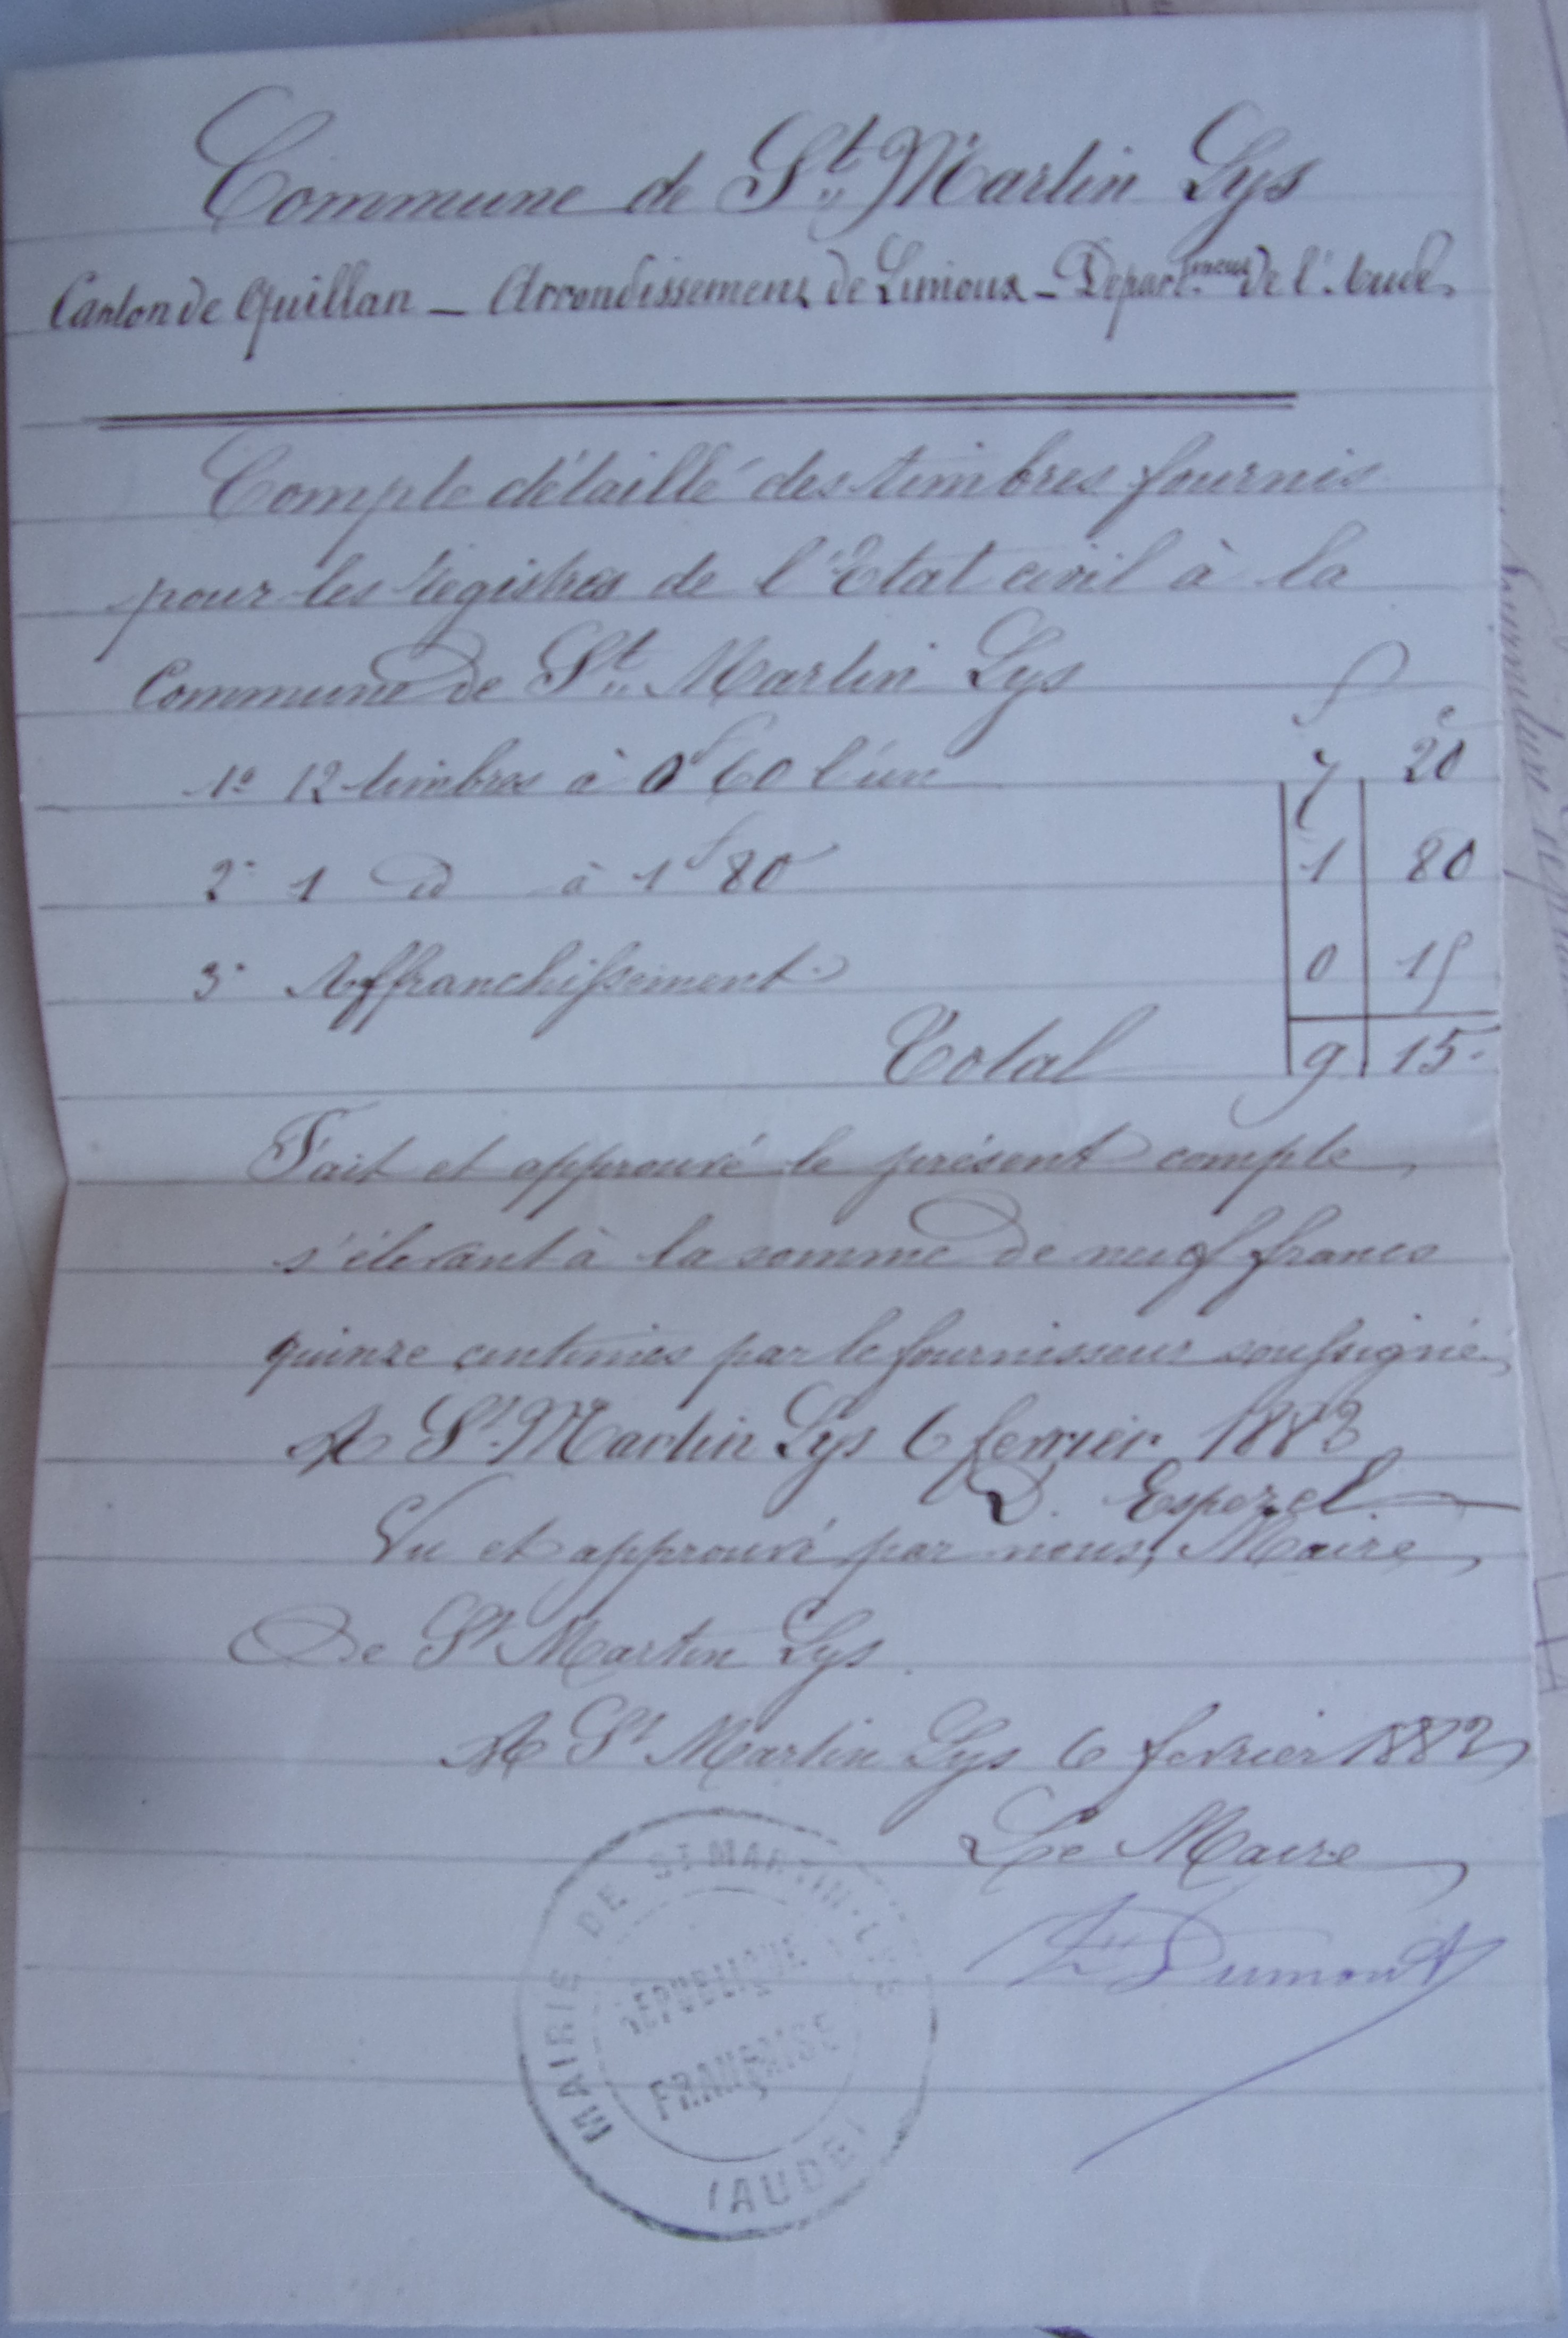 Commune de St Martin Lys
Canton de Quillan — Arrondissement de Limoux — Départ.ment de l'Aude
Compte détaillé des timbres fournis
pour les registres de l'Etat civil à la
Commune de St Martin Lys
f c
1º 12 timbres à 0f 60 l'un 7 20
2º 1 id à 1f 80 1 80
3º Affranchissement 0 15
Total 9 15
Fait et approuvé le présent compte,
s'élevant à la somme de neuf francs
quinze centimes par le fournisseur soussigné.
A St. Martin Lys 6 fevrier 1883
D. Espezel
Vu et approuvé par nous, Maire
De St Martin Lys
A St Martin Lys 6 fevrier 1883
Le Maire
Dumont
MAIRIE DE ST MARTIN-LYS
RÉPUBLIQUE
FRANÇAISE
(AUDE)